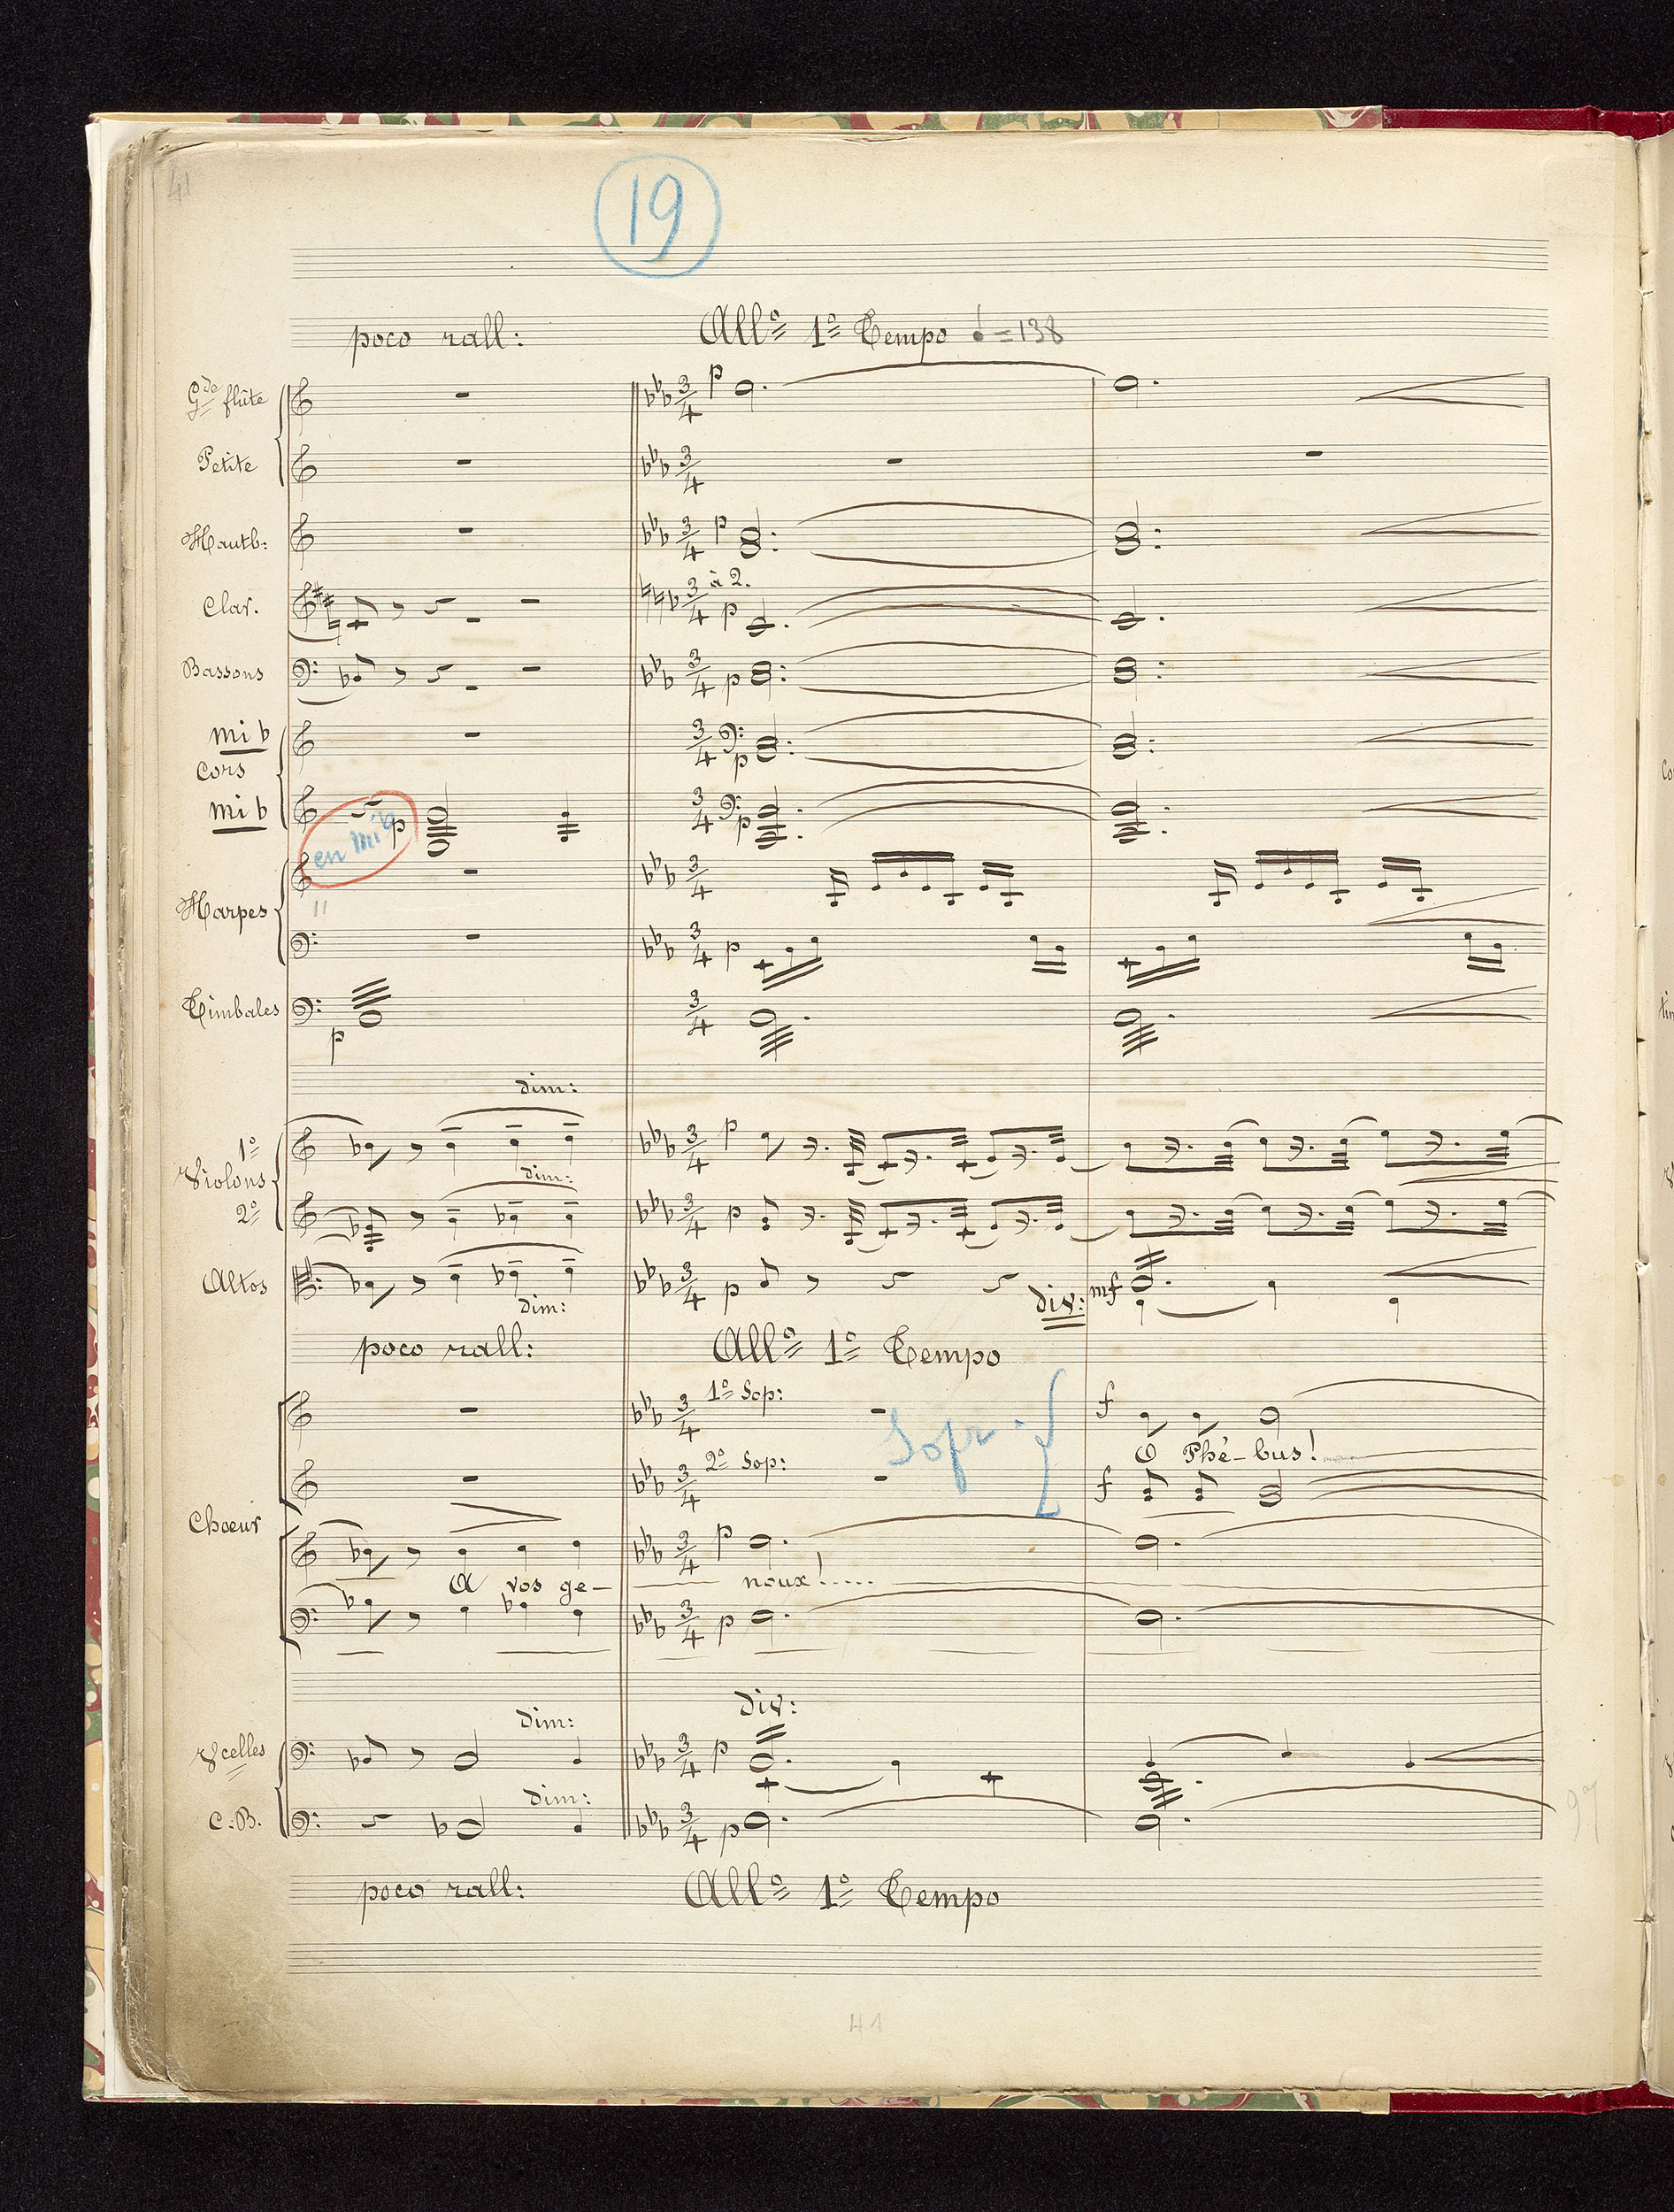 41
19
poco rall: All° 1° Tempo ♩ = 138
Gde flûte
p
Petite
Hautb:
p
à 2.
Clar.
p
Bassons
p
mi b
p
Cors
mi b
p
p
en mi b
Harpes
p
Timbales
p
dim:
1°
p
Violons
dim:
2°
p
Altos
p
mf
dim:
div:
poco rall: All° 1° Tempo
1° Sop:
f
Sopr.
O Phé-bus!
2° Sop:
f
Choeur
p
A vos ge- noux!.....
p
div:
dim:
Vcelles
p
dim:
C:B.
p
poco rall: All° 1° Tempo
41